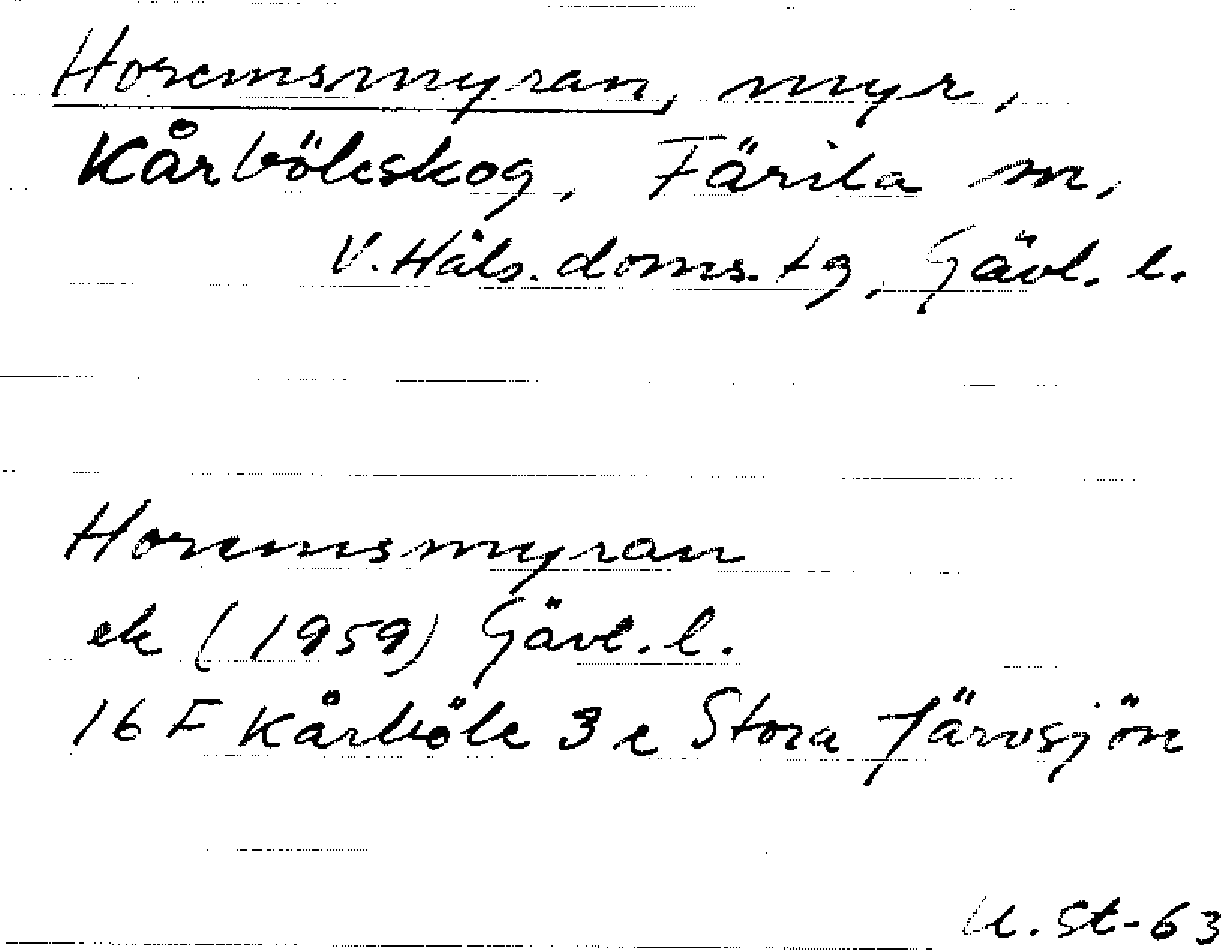 Horemsmyran, myr,
Kårböleskog, Färila sn,
V. Häls. doms. tg, Gävl. l.
Horemsmyran
ek (1959) Gävl. l.
16 F Kårböle 3 e Stora Järvsjön
U. St-63